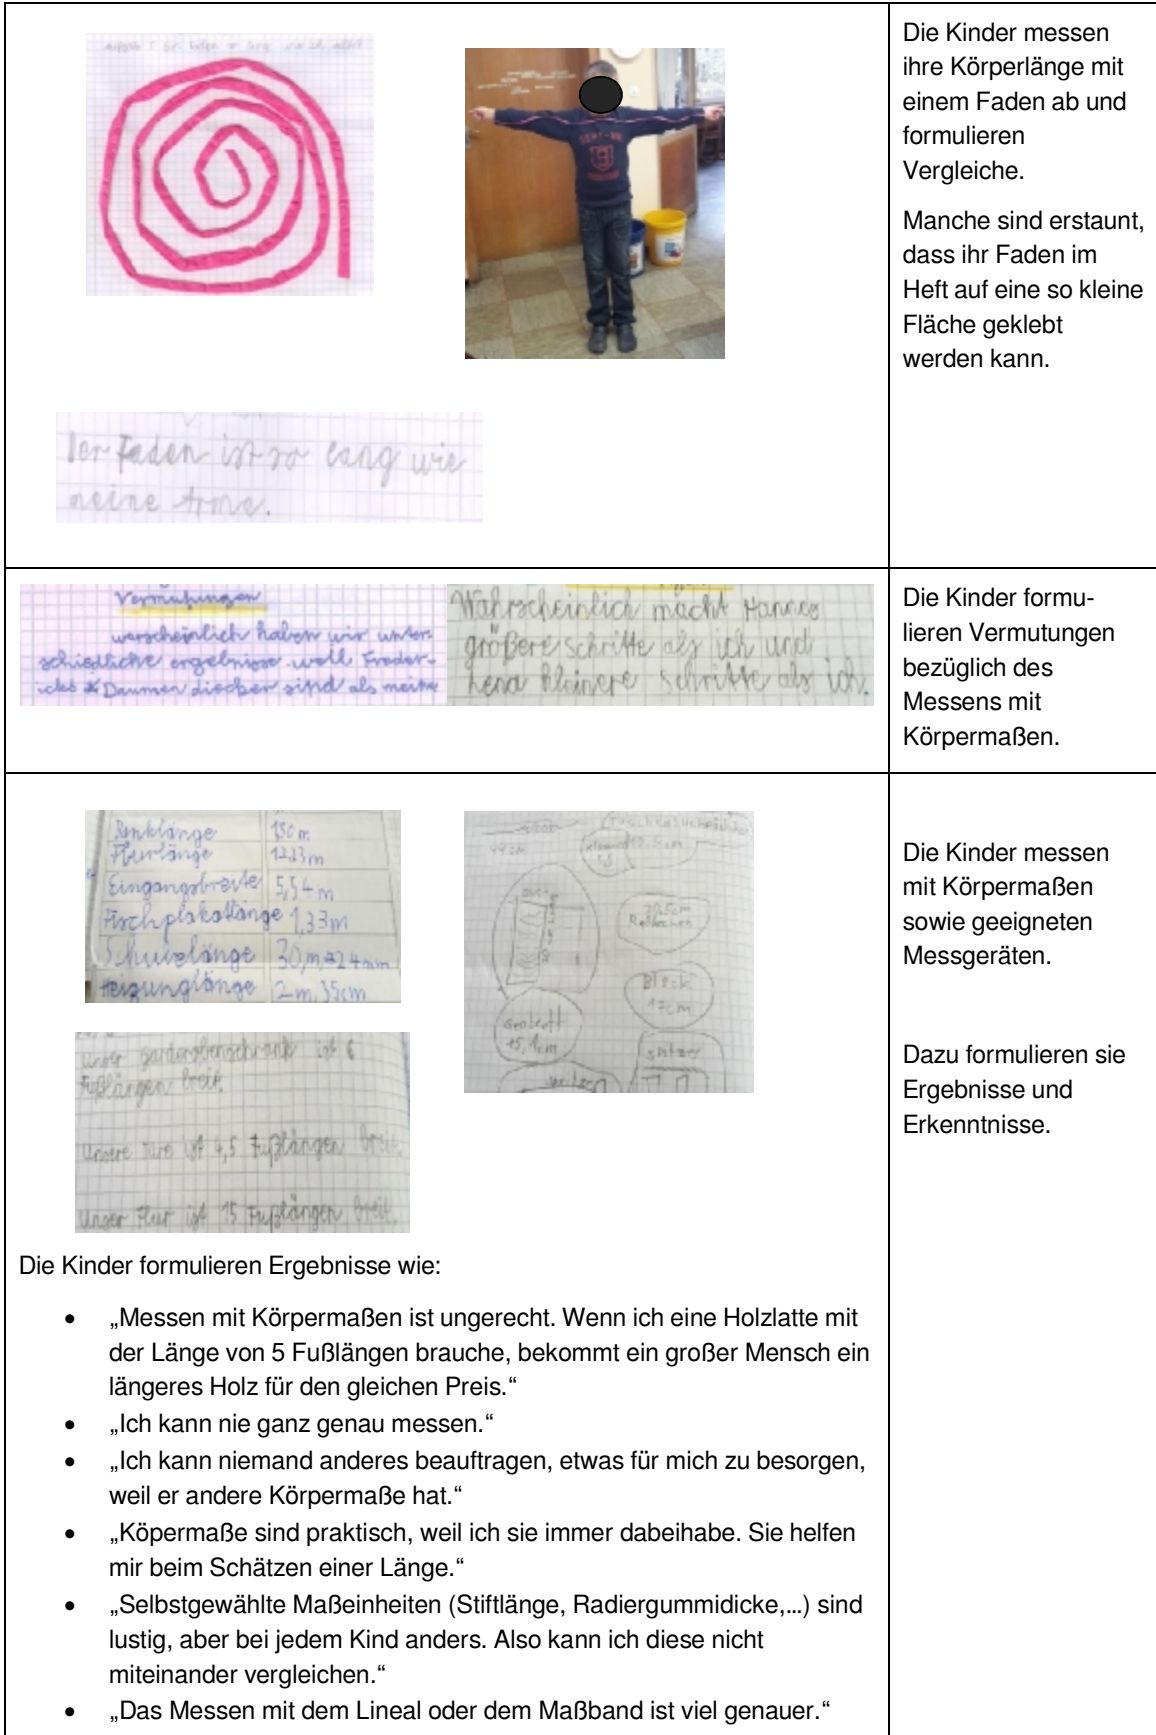 Die Kinder messen
ihre Körperlänge mit
einem Faden ab und
formulieren
Vergleiche.
Manche sind erstaunt,
dass ihr Faden im
Heft auf eine so kleine
Fläche geklebt
werden kann.
Faden ist so lang wie
meine Arme.
Vermutungen
warscheinlich haben wir unter-
schiedliche ergebnisse weil Freder-
icks Daumen dicker sind als meine
Wahrscheinlich macht Hannes
größere schritte als ich und
Lena kleinere schritte als ich.
Die Kinder formu-
lieren Vermutungen
bezüglich des
Messens mit
Körpermaßen.
Flurlänge 12,13 m
Eingangsbreite 5,54 m
Fischplakatlänge 1,33 m
Heizunglänge 2 m, 35cm
49 cm
Block
17cm
15,1cm
spitzer
Unser garderobenschrank ist 6
Fußlängen breit.
Unsere Türe ist 4,5 Fußlängen breit.
Unser Flur ist 15 Fußlängen breit.
Die Kinder messen
mit Körpermaßen
sowie geeigneten
Messgeräten.
Dazu formulieren sie
Ergebnisse und
Erkenntnisse.
Die Kinder formulieren Ergebnisse wie:
• „Messen mit Körpermaßen ist ungerecht. Wenn ich eine Holzlatte mit
der Länge von 5 Fußlängen brauche, bekommt ein großer Mensch ein
längeres Holz für den gleichen Preis.“
• „Ich kann nie ganz genau messen.“
• „Ich kann niemand anderes beauftragen, etwas für mich zu besorgen,
weil er andere Körpermaße hat.“
• „Köpermaße sind praktisch, weil ich sie immer dabeihabe. Sie helfen
mir beim Schätzen einer Länge.“
• „Selbstgewählte Maßeinheiten (Stiftlänge, Radiergummidicke,...) sind
lustig, aber bei jedem Kind anders. Also kann ich diese nicht
miteinander vergleichen.“
• „Das Messen mit dem Lineal oder dem Maßband ist viel genauer.“